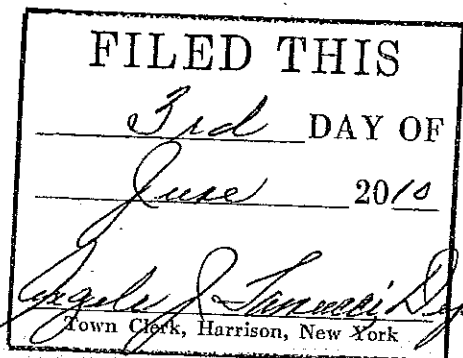 FILED THIS
3rd DAY OF
June 2010
Angelo J.
Town Clerk, Harrison, New York